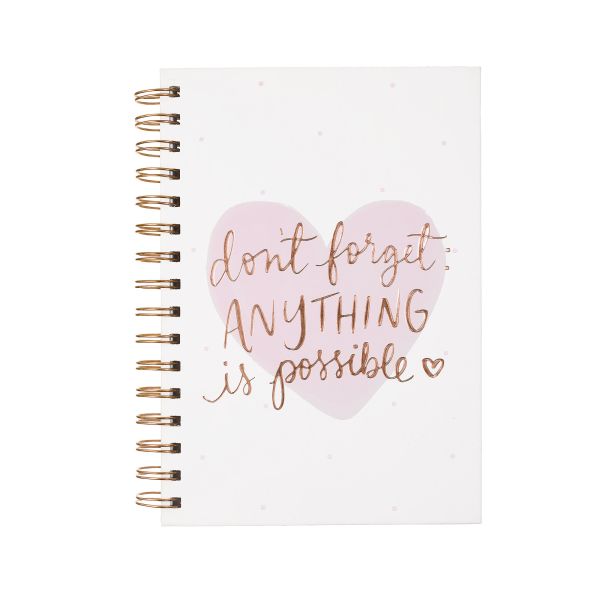 don't forget:
ANYTHING
is possible